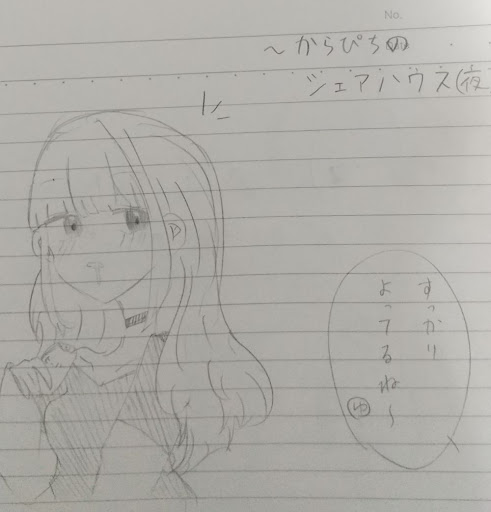 No.
～からぴちの
シェアハウス(夜
すっかり
よってるね～
ゆ